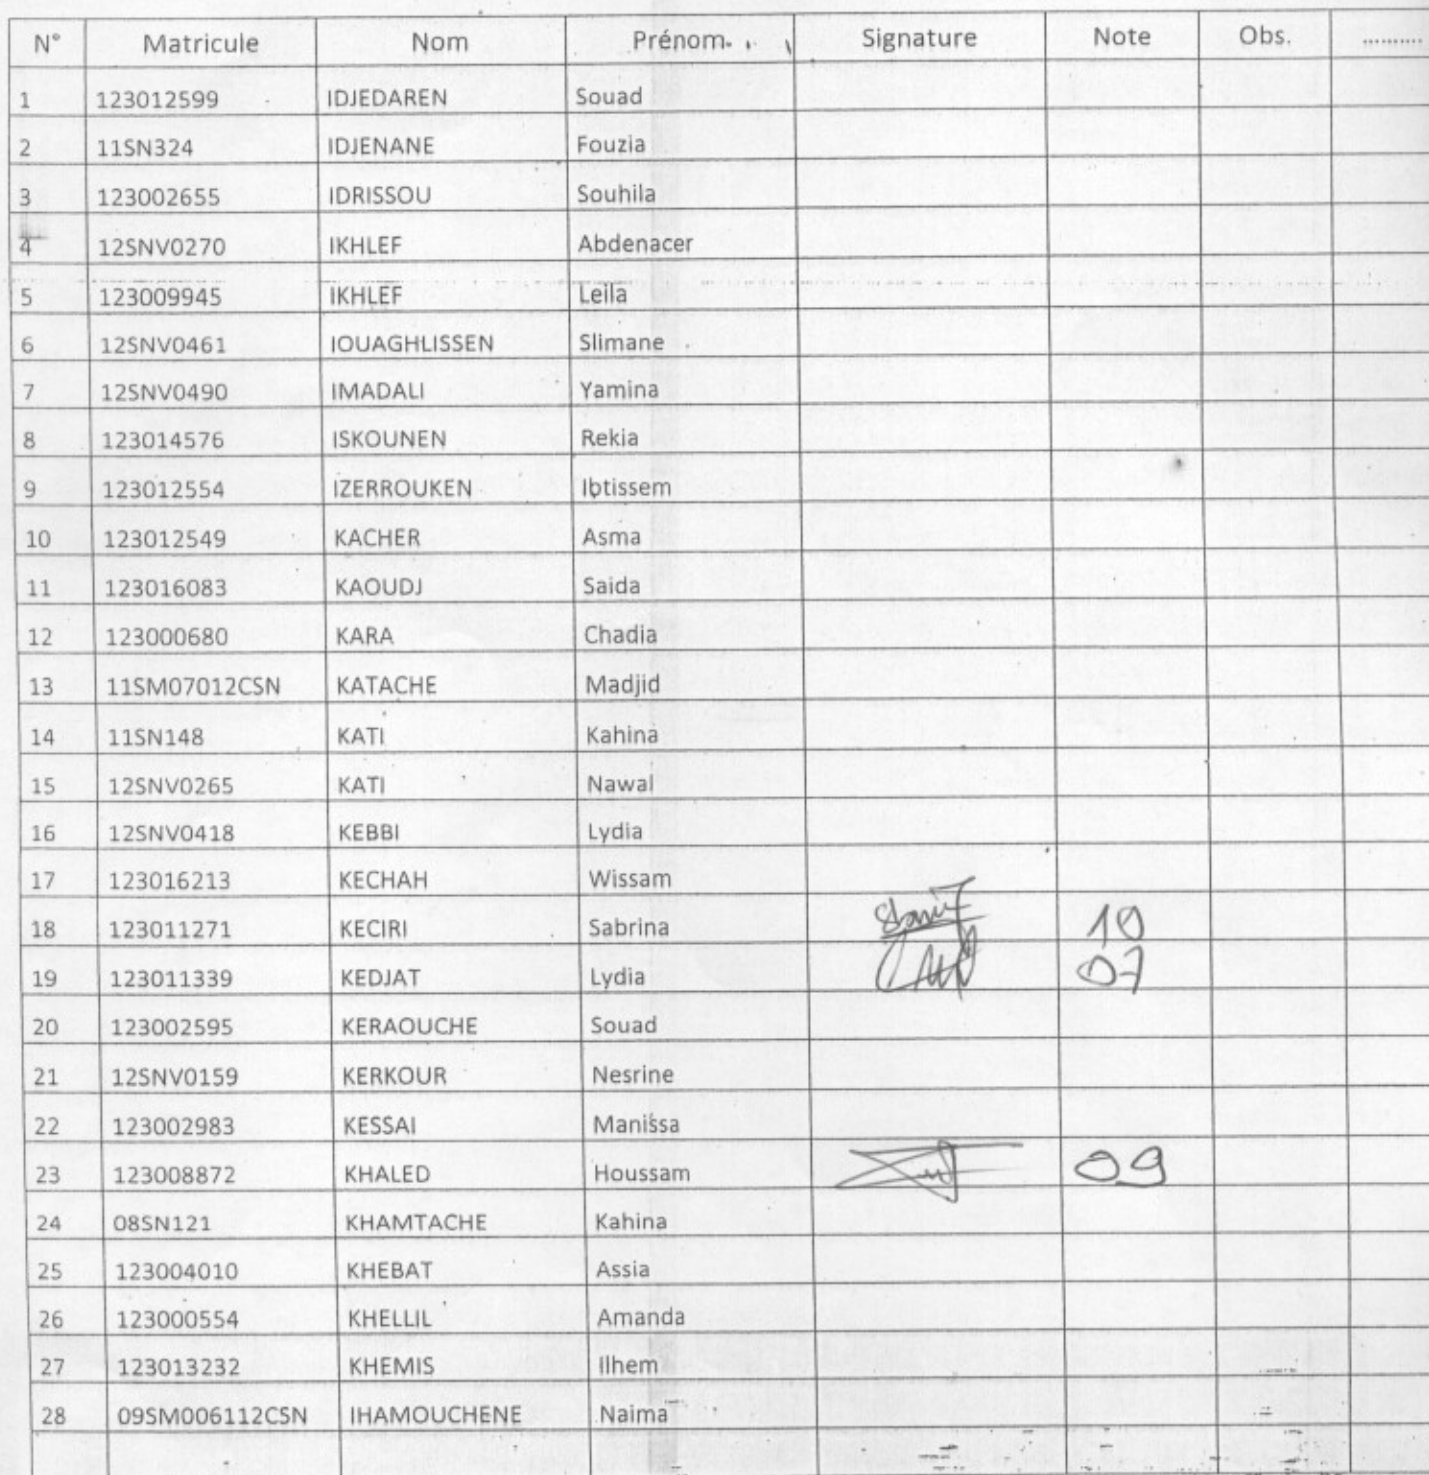 N° Matricule Nom Prénom Signature Note Obs. ..........
1 123012599 IDJEDAREN Souad
2 11SN324 IDJENANE Fouzia
3 123002655 IDRISSOU Souhila
4 12SNV0270 IKHLEF Abdenacer
5 123009945 IKHLEF Leila
6 12SNV0461 IOUAGHLISSEN Slimane
7 12SNV0490 IMADALI Yamina
8 123014576 ISKOUNEN Rekia
9 123012554 IZERROUKEN Ibtissem
10 123012549 KACHER Asma
11 123016083 KAOUDJ Saida
12 123000680 KARA Chadia
13 11SM07012CSN KATACHE Madjid
14 11SN148 KATI Kahina
15 12SNV0265 KATI Nawal
16 12SNV0418 KEBBI Lydia
17 123016213 KECHAH Wissam
18 123011271 KECIRI Sabrina 10
19 123011339 KEDJAT Lydia 07
20 123002595 KERAOUCHE Souad
21 12SNV0159 KERKOUR Nesrine
22 123002983 KESSAI Manissa
23 123008872 KHALED Houssam 09
24 08SN121 KHAMTACHE Kahina
25 123004010 KHEBAT Assia
26 123000554 KHELLIL Amanda
27 123013232 KHEMIS Ilhem
28 09SM006112CSN IHAMOUCHENE Naima